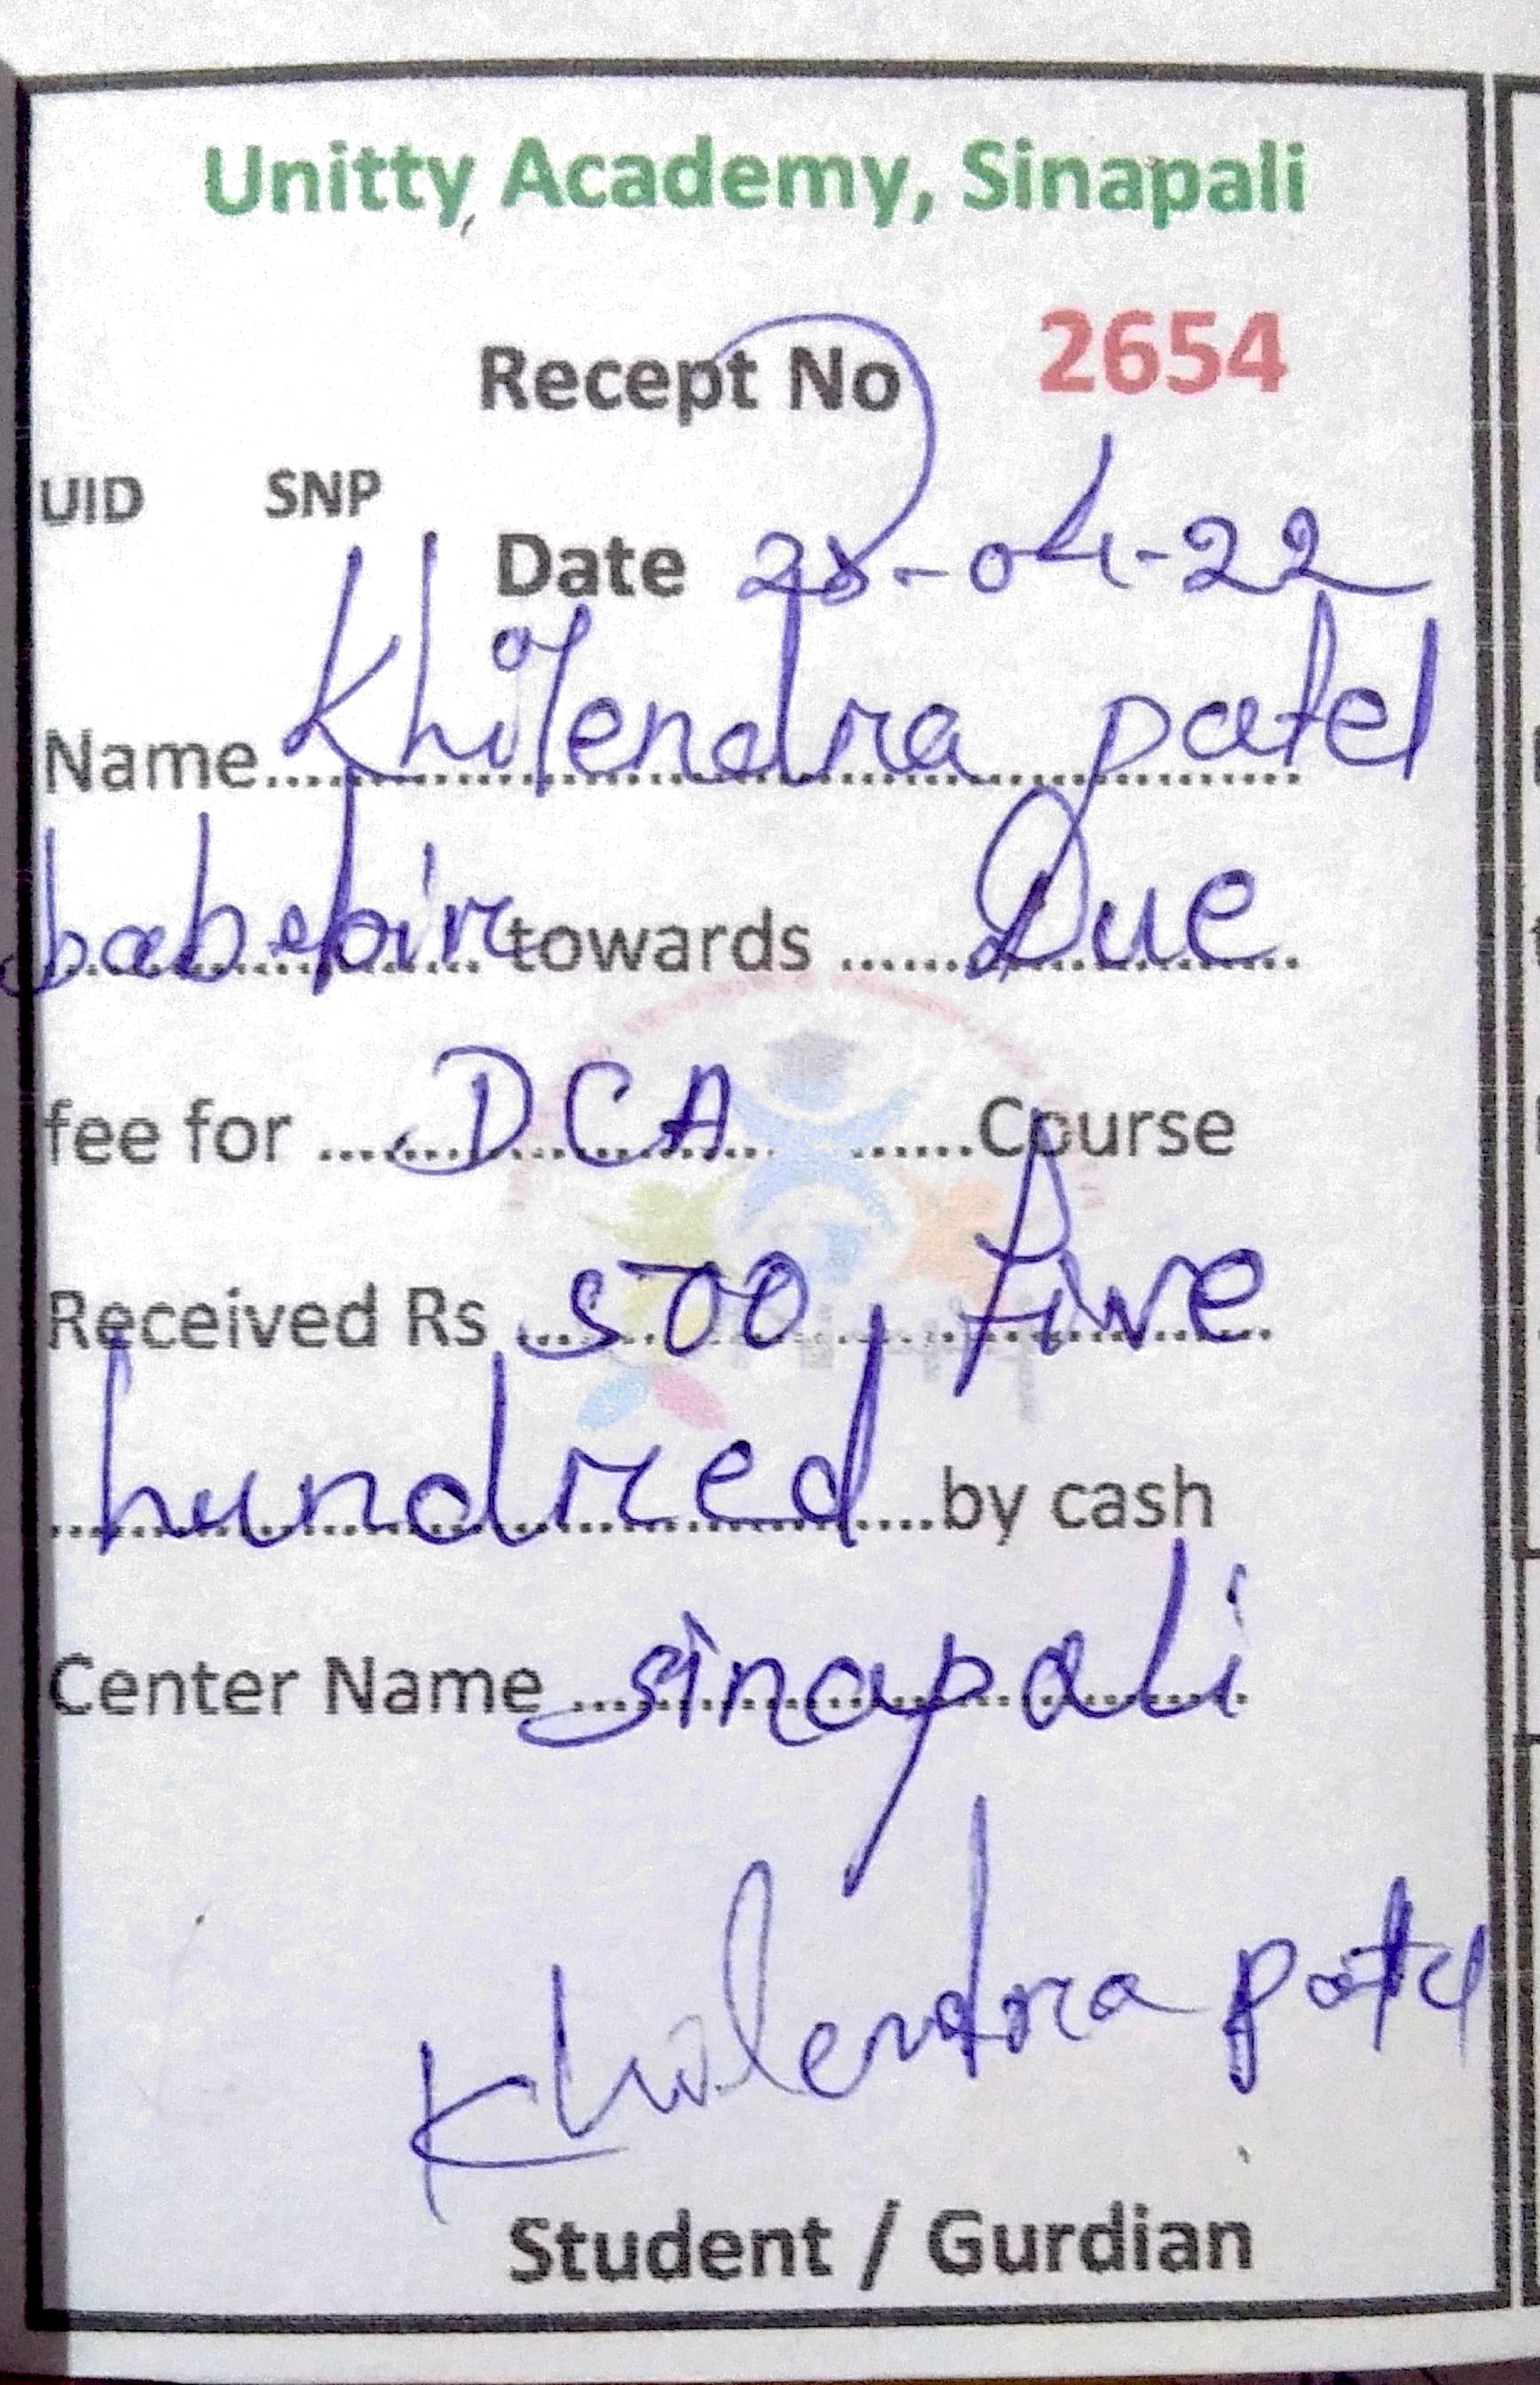 Unitty Academy, Sinapali
Recept No 2654
UID SNP
Date 28-04-22
Name Khilendra patel
towards Due
fee for DCA Course
Received Rs 500, five
hundred by cash
Center Name sinapali
Khilendra patel
Student / Gurdian